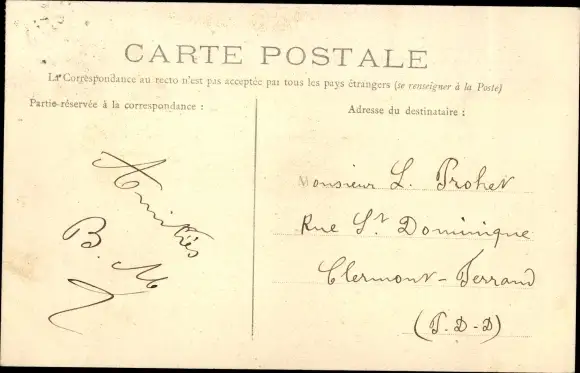 CARTE POSTALE
La Correspondance au recto n'est pas acceptée par tous les pays étrangers (se renseigner à la Poste)
Partie réservée à la correspondance :
Amitiés
B. M
Adresse du destinataire :
Monsieur L. Prohet
Rue St Dominique
Clermont-Ferrand
(P-D-D)